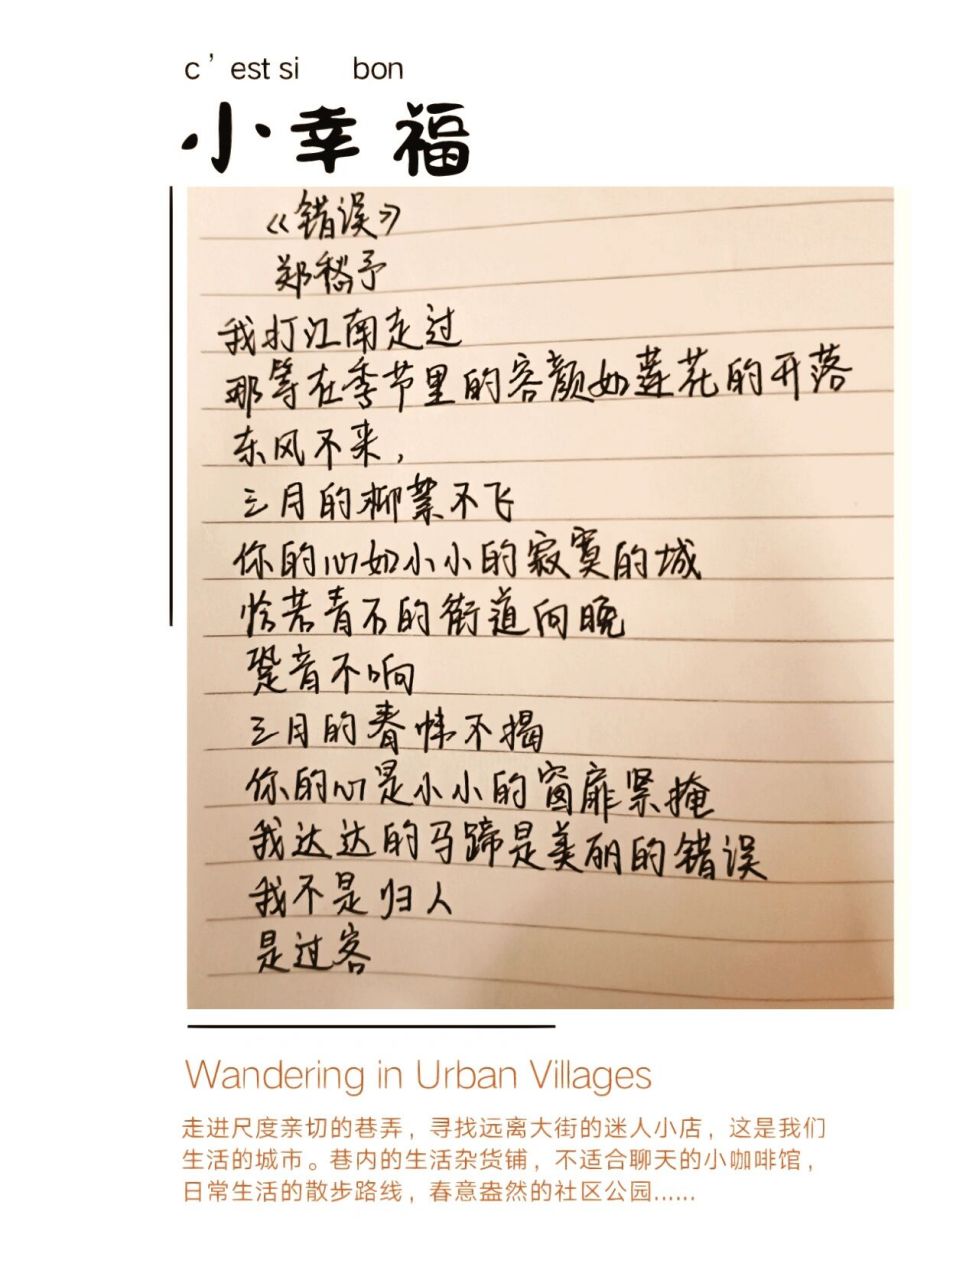 c’est si bon
小幸福
《错误》
郑愁予
我打江南走过
那等在季节里的容颜如莲花的开落
东风不来，
三月的柳絮不飞
你的心如小小的寂寞的城
恰若青石的街道向晚
跫音不响
三月的春帷不揭
你的心是小小的窗扉紧掩
我达达的马蹄是美丽的错误
我不是归人
是过客
Wandering in Urban Villages
走进尺度亲切的巷弄，寻找远离大街的迷人小店，这是我们
生活的城市。巷内的生活杂货铺，不适合聊天的小咖啡馆，
日常生活的散步路线，春意盎然的社区公园……